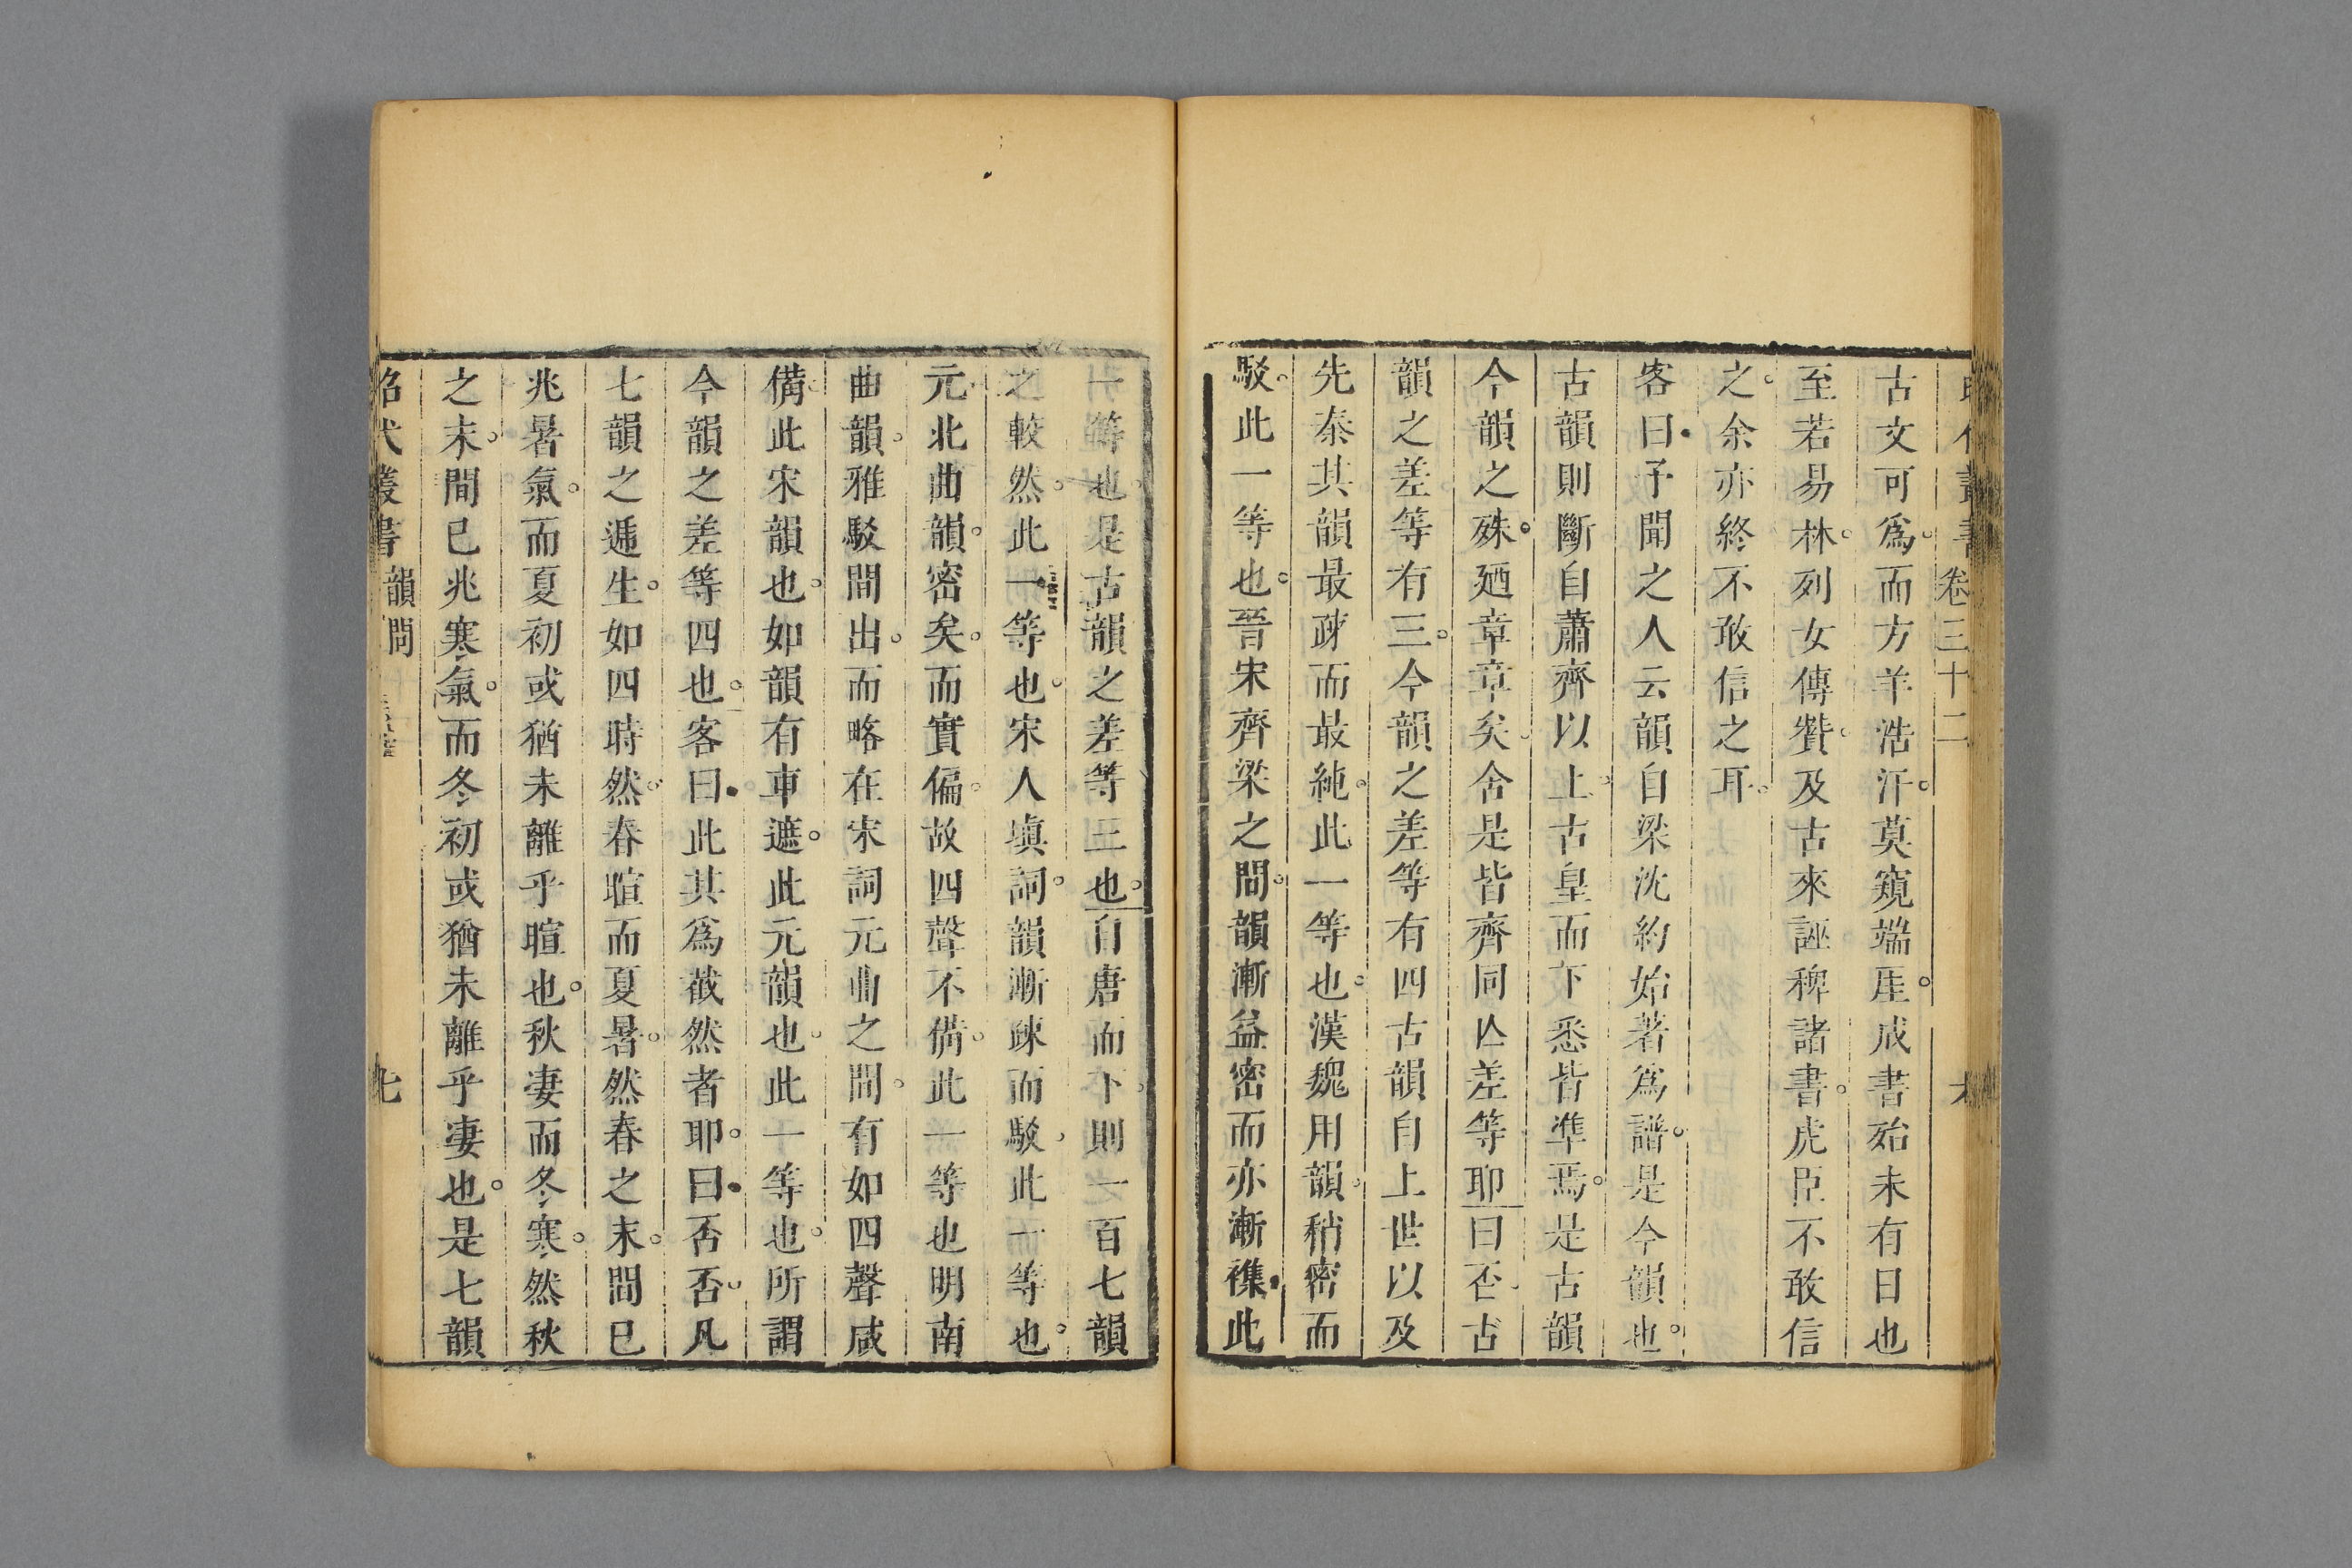 書卷三十二
古文可爲而方羊浩汗莫窺端厓成書殆未有日也
至若易林列女傳贊及古來誣稗諸書虎臣不敢信
之余亦終不敢信之耳
客曰予聞之人云韻自梁沈約始著爲譜是今韻也
古韻則斷自蕭齊以上古皇而下悉皆準焉是古韻
今韻之殊廼章章矣舍是皆齊同亾差等耶曰否古
韻之差等有三今韻之差等有四古韻自上世以及
先秦其韻最疎而最純此一等也漢魏用韻稍密而
駁此一等也晉宋齊梁之間韻漸益密而亦漸襍此
一等也是古韻之差等三也自唐而下則一百七韻
之較然此一等也宋人塡詞韻漸疎而駁此一等也
元北曲韻密矣而實偏故四聲不備此一等也明南
曲韻雅駁間出而略在宋詞元曲之間有如四聲咸
備此宋韻也如韻有車遮此元韻也此一等也所謂
今韻之差等四也客曰此其爲截然者耶曰否否凡
七韻之遞生如四時然春暄而夏暑然春之末間已
兆暑氣而夏初或猶未離乎暄也秋凄而冬寒然秋
之末間已兆寒氣而冬初或猶未離乎凄也是七韻
昭代叢書 韻問 七